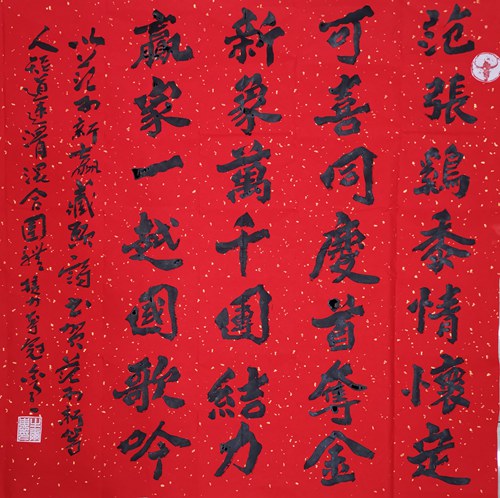 范張鷄黍情懷定
可喜同慶首奪金
新象萬千團結力
贏家一越國歌吟
以范可新贏藏頭詩書賀范可新等
人短道速滑混合團體接力